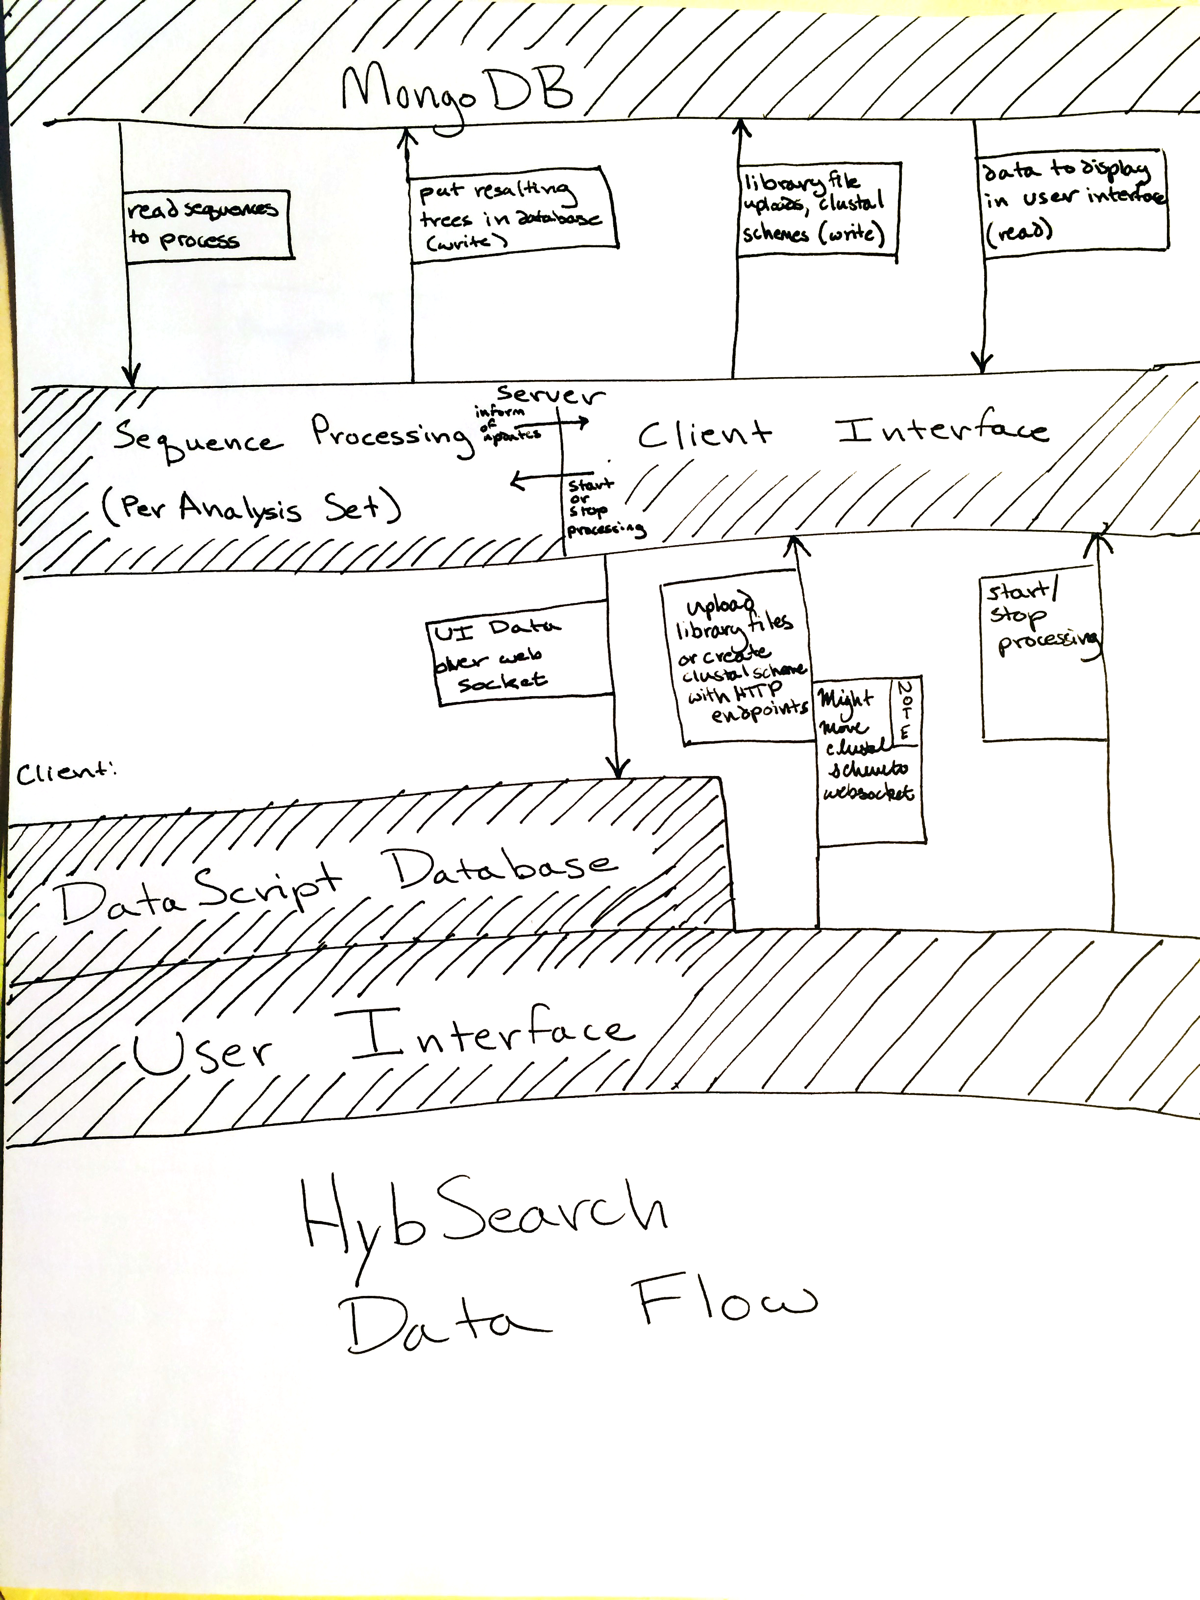 MongoDB
read sequences
to process
put resulting
trees in database
(write)
library file
uploads, clustal
schemes (write)
data to display
in user interface
(read)
Server
Sequence Processing
(Per Analysis Set)
inform
of
updates
start
or
stop
processing
Client Interface
UI Data
over web
socket
upload
library files
or create
clustal scheme
with HTTP
endpoints
NOTE
Might
move
clustal
scheme to
websocket
start/
stop
processing
Client:
DataScript Database
User Interface
HybSearch
Data Flow